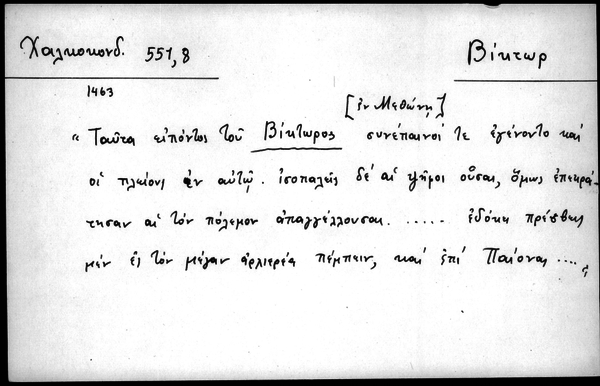 Χαλκοκονδ. 551,8
Βίκτωρ
1463
[ἐν Μεθώνῃ]
"Ταῦτα εἰπόντος τοῦ Βίκτωρος συνέπαινοί τε ἐγένοντο καὶ
οἱ πλείους ἐν αὐτῷ. ἰσοπαλεῖς δέ αἱ ψῆφοι οὖσαι, ὅμως ἐπεκρά-
τησαν αἱ τὸν πόλεμον ἀπαγγέλλουσαι. ..... ἐδόκει πρέσβεις
μέν ἐς τὸν μέγαν ἀρχιερέα πέμπειν, καὶ ἐπὶ Παίονας ....,